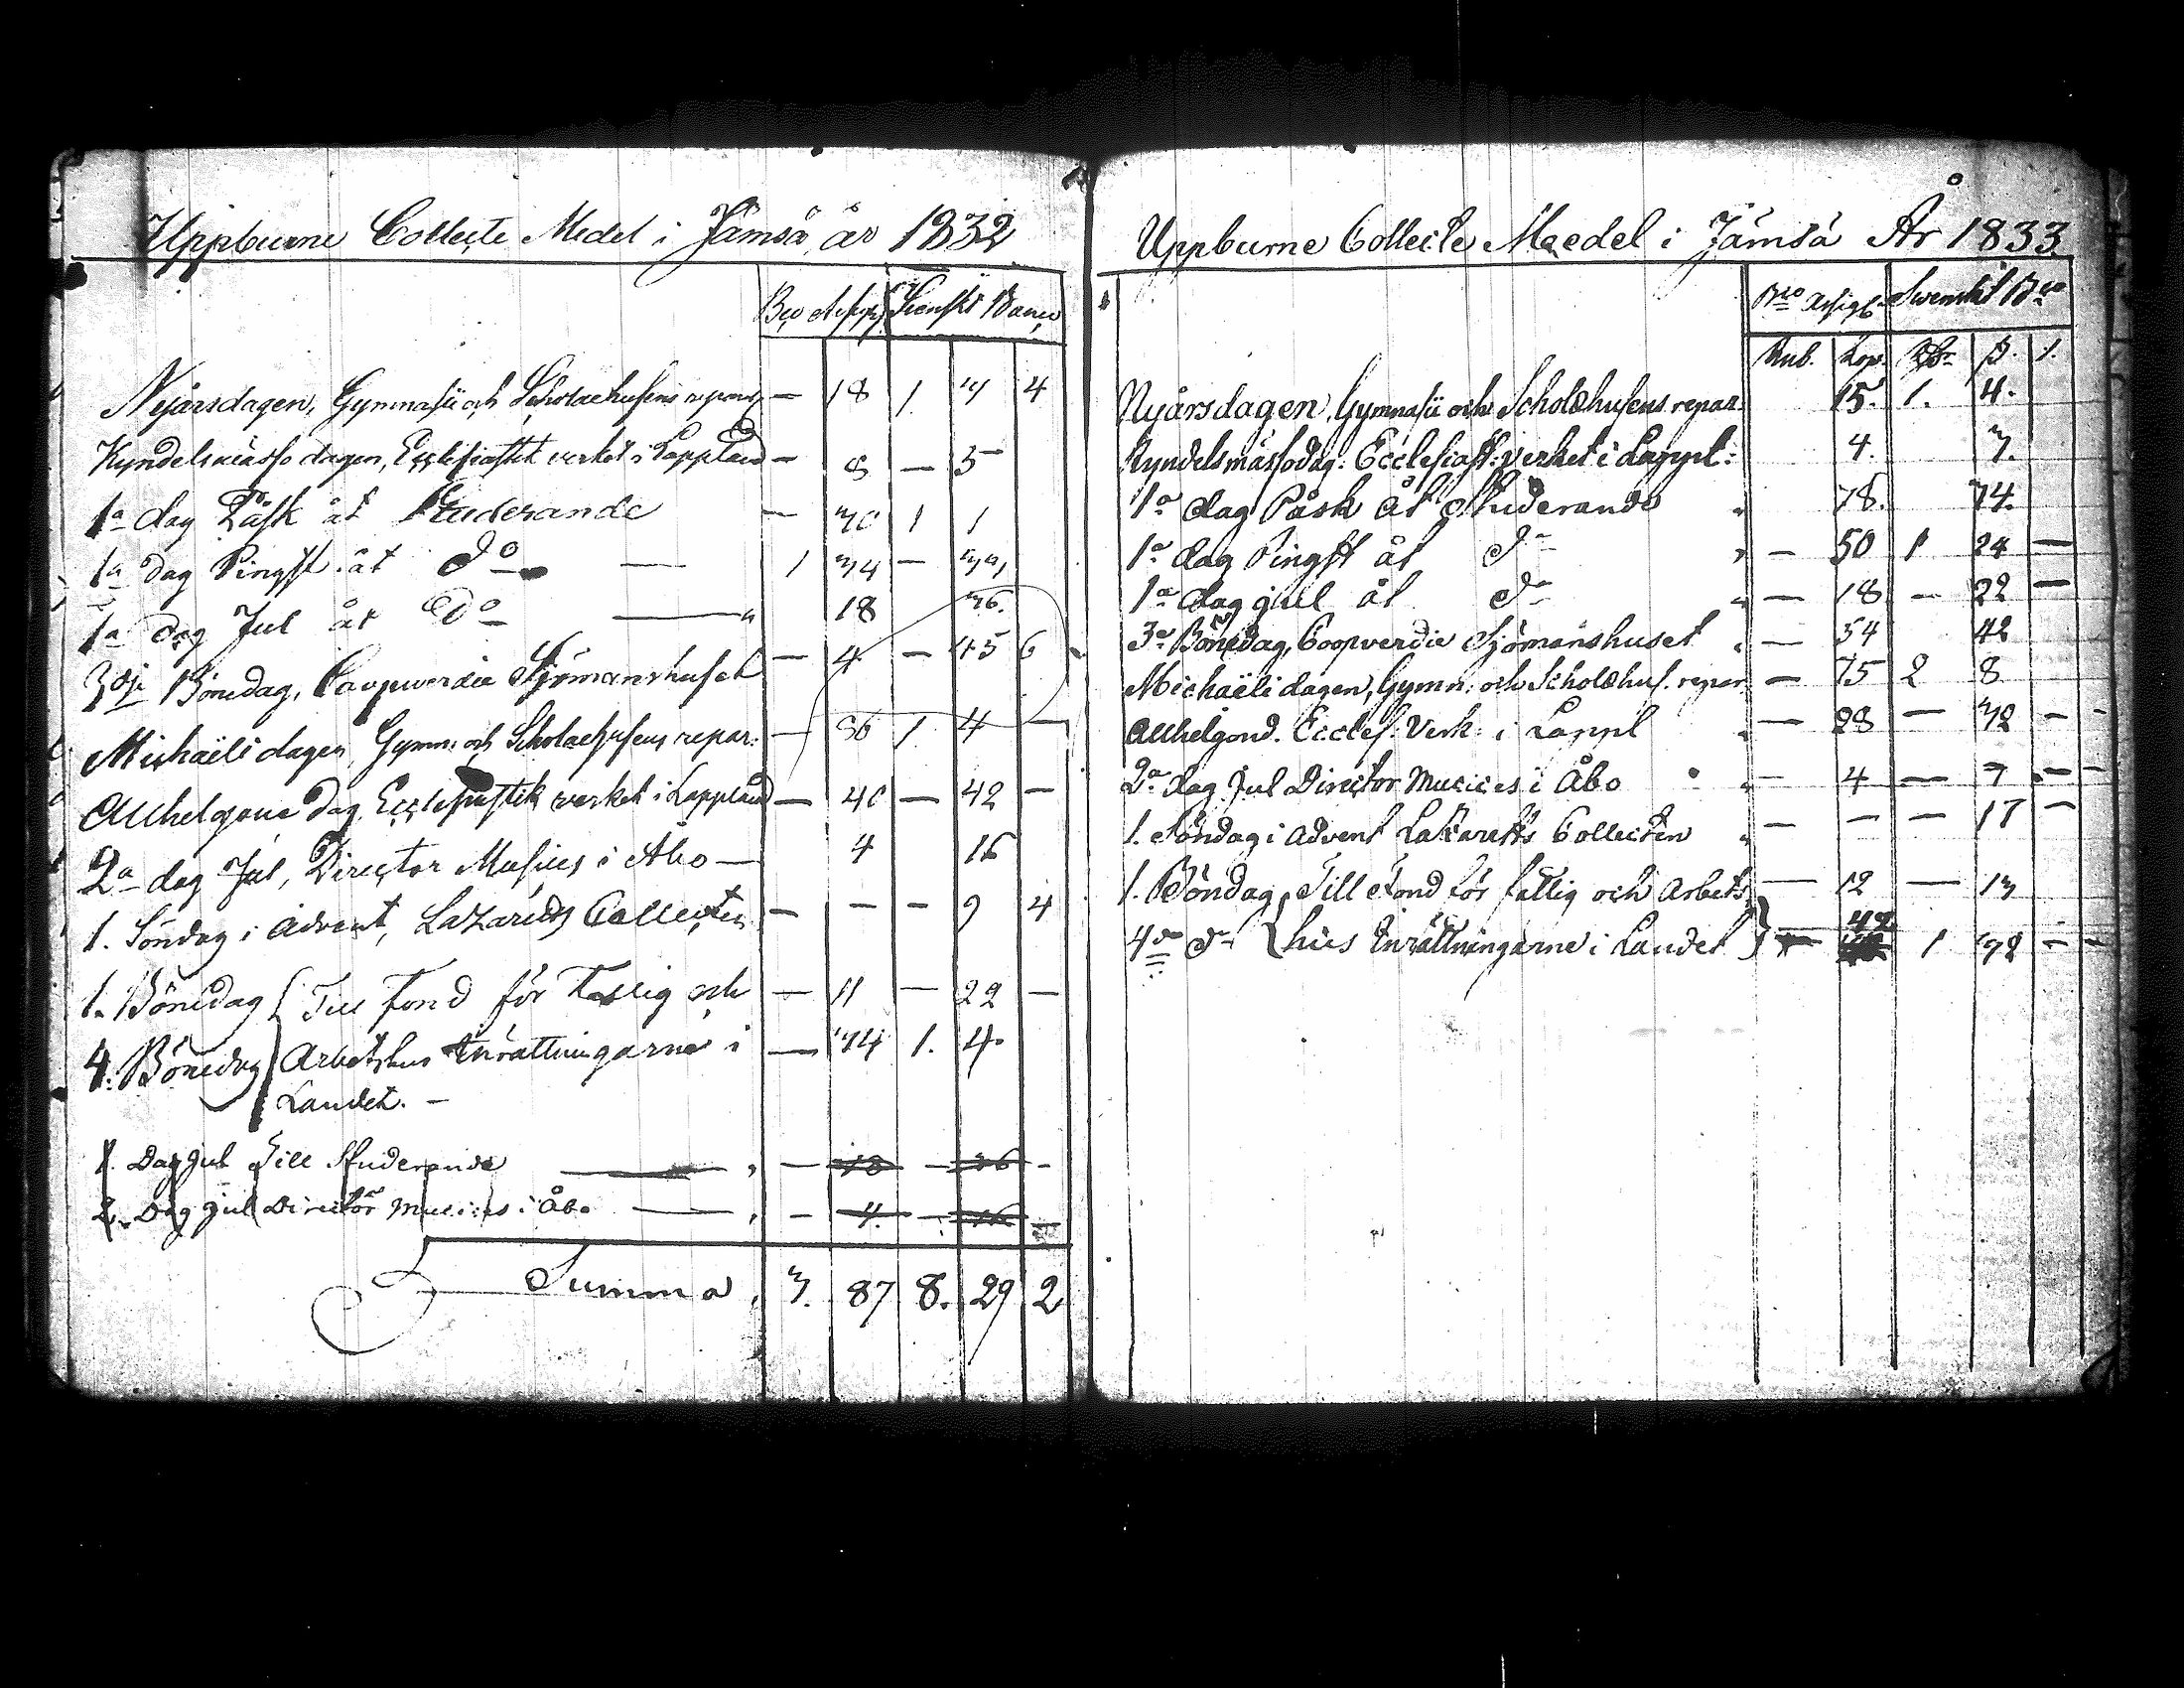 Uppburne Collecte Medel i Jämsä år 1832
Bco Assign Svenskt Banco
Nyårsdagen, Gymnasii och Scholaehusens repar: — 18 1. 3 4
Kyndelsmässo dagen, Ecclesiastik verket i Lappland — 8 — 5
1a dag Påsk åt Studerande — 30 1 1
1a dag Pingst åt do — 1 34 —
1a dag Jul åt do — 18 36.
3dje Bönedag, Coopverdie Sjömanshuset — 4 — 45 6
Michaëli dagen Gymn: och Scholaehusens repar: — 86 1. 4 —
Allhelgona dag, Ecclesiastik verket i Lappland — 40 — 42 —
2a dag Jul, Director Musices i Åbo — 4 16
1. Söndag i Advent, Lazaretts Collecten — — — 9 4
1. Bönedag { Till Fond för Fattig och — 11 — 22 —
4. Bönedag Arbetshus Inrättningarne i — 34 1. 4.
Landet. —
1. Dag Jul Till Studerande — 18 — 36 —
2. Dag Jul Director Musices i Åbo — 4. — 16 —
Summa, 3. 87 8. 29 2
Uppburne Collecte Medel i Jämsä År 1833
Bco Assign. Swenskt Bco
Rub. Kop. Rdr. ß. r.
Nyårsdagen, Gymnasii och Scholæhusens repar. 15. 1. 4.
Kyndelsmässodag: Ecclesiast: verket i Lappl: 4. 7.
1a dag Påsk åt Studerande „ 78. 34.
1a dag Pingst åt do „ — 50 1 24 —
1a dag jul åt do „ — 18 — 22 —
3e Bönedag, Coopverdie Sjömanshuset „ — 54 42
Michaëli dagen, Gymn: och Scholæhus. repar — 75 2 8
Allhelgond. Eccles: Verk: i Lappl „ — 28 — 32 — -
2a dag Jul Director Musices i Åbo „ — 4 — 7 — -
1. Söndag i Advent Lazaretts Collecten „ — — — 17 —
1. Böndag, Till Fond för fattig och Arbets — 12 — 13
4de do { hus Inrättningarne i Landet } — 42 1 32 — -